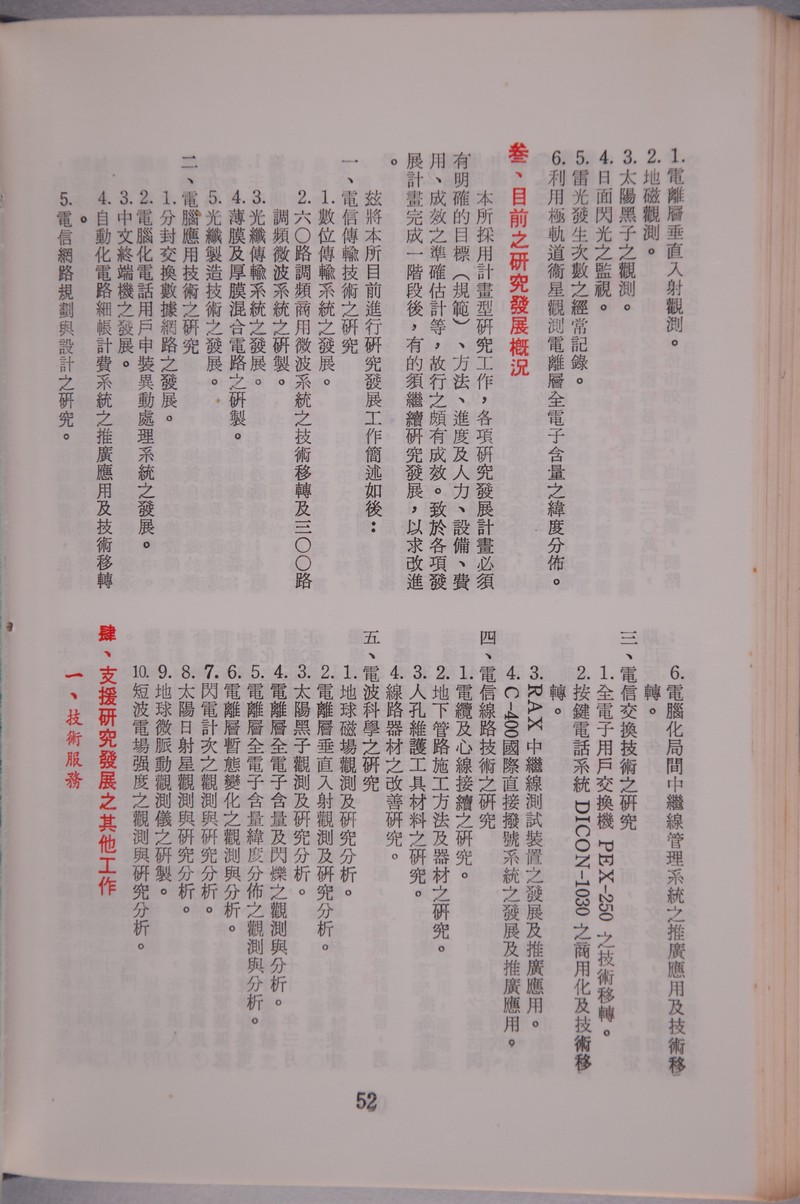 1.電離層垂直入射觀測。
2.地磁觀測。
3.太陽黑子之觀測。
4.日面閃光之監視。
5.雷光發生次數之經常記錄。
6.利用極軌道衞星觀測電離層全電子含量之緯度分佈。
叁、目前之研究發展概況
本所採用計畫型研究工作，各項研究發展計畫必須
有明確的目標（規範）、方法、進度及人力、設備、費
用、成效之準確估計等，故行之頗有成效。致於各項發
展計畫完成一階段後，有的須繼續研究發展，以求改進
。
茲將本所目前進行研究發展工作簡述如後：
一、電信傳輸技術之研究
1.數位傳輸系統之發展。
2.六〇路調頻商用微波系統之技術移轉及三〇〇路
調頻微波系統之研製。
3.光纖傳輸系統之發展。
4.薄膜及厚膜混合電路之研製。
5.光纖製造技術之發展。
二、電腦應用技術之研究
1.分封交換數據網路之發展。
2.電腦化電話用戶申裝異動處理系統之發展。
3.中文終端機之發展。
4.自動化電路細帳計費系統之推廣應用及技術移轉
。
5.電信網路規劃與設計之研究。
6.電腦化局間中繼線管理系統之推廣應用及技術移
轉。
三、電信交換技術之研究
1.全電子用戶交換機 PEX-250 之技術移轉。
2.按鍵電話系統 DICON-1030 之商用化及技術移
轉。
3.RAX中繼線測試裝置之發展及推廣應用。
4.C-400國際直接撥號系統之發展及推廣應用。
四、電信線路技術之研究
1.電纜及心線接續之研究。
2.地下管路施工方法及器材之研究。
3.人孔維護工具材料之研究。
4.線路器材之改善研究。
五、電波科學之研究
1.地球磁場觀測及研究分析。
2.電離層垂直入射觀測及研究分析。
3.太陽黑子觀測及研究分析。
4.電離層全電子含量及閃爍之觀測與分析。
5.電離層全電子含量緯度分佈之觀測與分析。
6.電離層暫態變化之觀測與分析。
7.閃電計次之觀測與研究分析。
8.太陽日射星觀測與研究分析。
9.地球微脈動觀測儀之研製。
10.短波電場强度之觀測與研究分析。
肆、支援研究發展之其他工作
一、技術服務
52